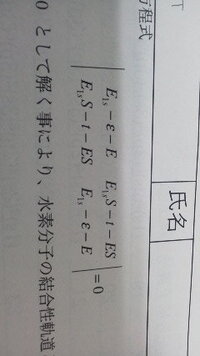 T
方程式
氏名
| E₁ₛ − ε − E  E₁ₛS − t − ES |
| E₁ₛS − t − ES  E₁ₛ − ε − E | = 0
0 として解く事により、水素分子の結合性軌道